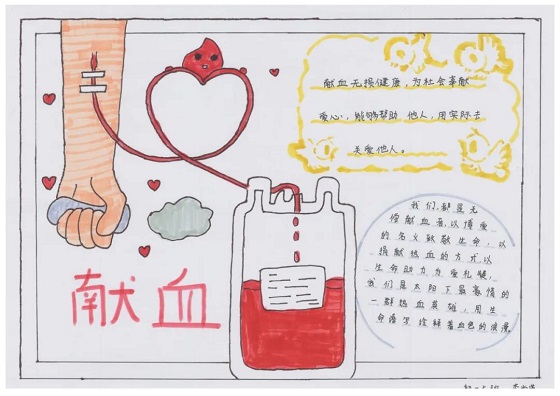 献血无损健康，为社会奉献
爱心，能够帮助他人，用实际去
关爱他人。
我们，都是无
偿献血者，以博爱
的名义致敬生命，以
捐献热血的方式，以
生命助力为爱礼赞，
我们是太阳下最豪情的
一群热血英雄，用生
命谱写诠释着血色的浪漫。
献血